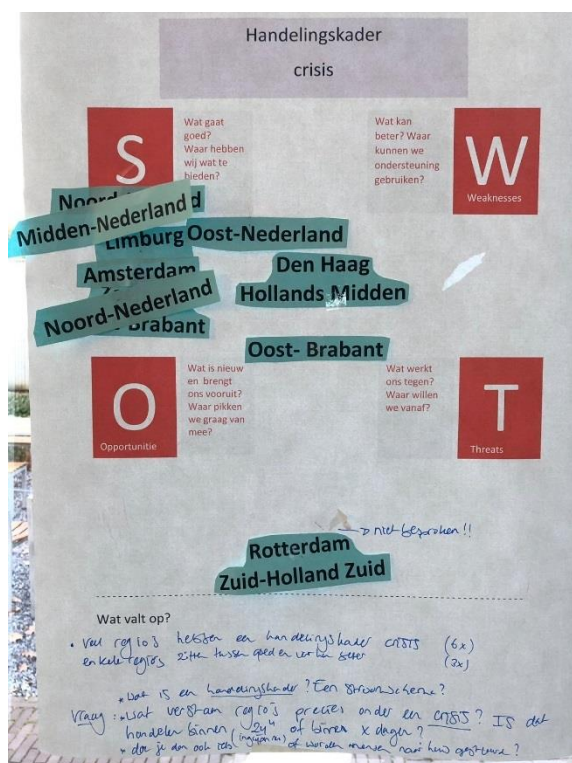 Handelingskader
crisis
S
Wat gaat
goed?
Waar hebben
wij wat te
bieden?
Wat kan
beter? Waar
kunnen we
ondersteuning
gebruiken?
W
Weaknesses
Noord-
Midden-Nederland
Limburg Oost-Nederland
Amsterdam
Den Haag
Hollands Midden
Noord-Nederland
Brabant
Oost- Brabant
O
Opportunitie
Wat is nieuw
en brengt
ons vooruit?
Waar pikken
we graag van
mee?
Wat werkt
ons tegen?
Waar willen
we vanaf?
T
Threats
niet besproken!!
Rotterdam
Zuid-Holland Zuid
Wat valt op?
• Veel regio's hebben een handelingskader crisis (6x)
enkele regio's zitten tussen goed en verbeter (3x)
* Wat is een handelingskader? Een stroomschema?
Vraag: * wat verstaan regio's precies onder een crisis? Is dat
handelen binnen 24u of binnen x dagen?
* doe je dan ook iets of worden mensen naar huis gestuurd?